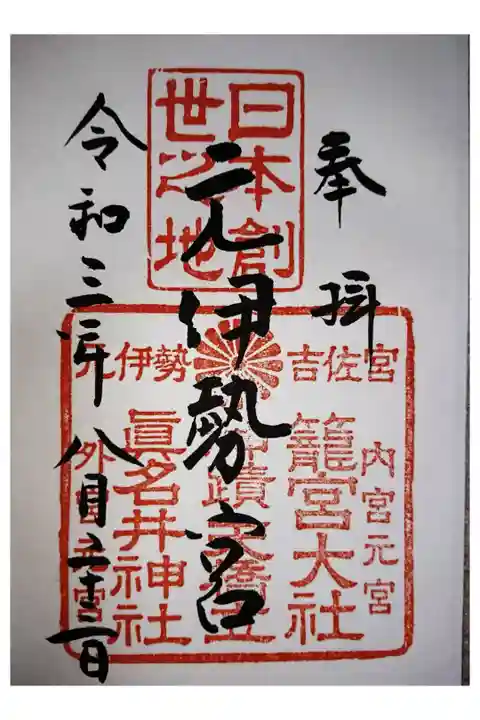 奉拝
日本創
世之地
元伊勢宮
吉佐宮
元伊勢
内宮元宮
籠宮大社
蹟天橋立
眞名井神社
外宮元宮
令和三年八月二十二日